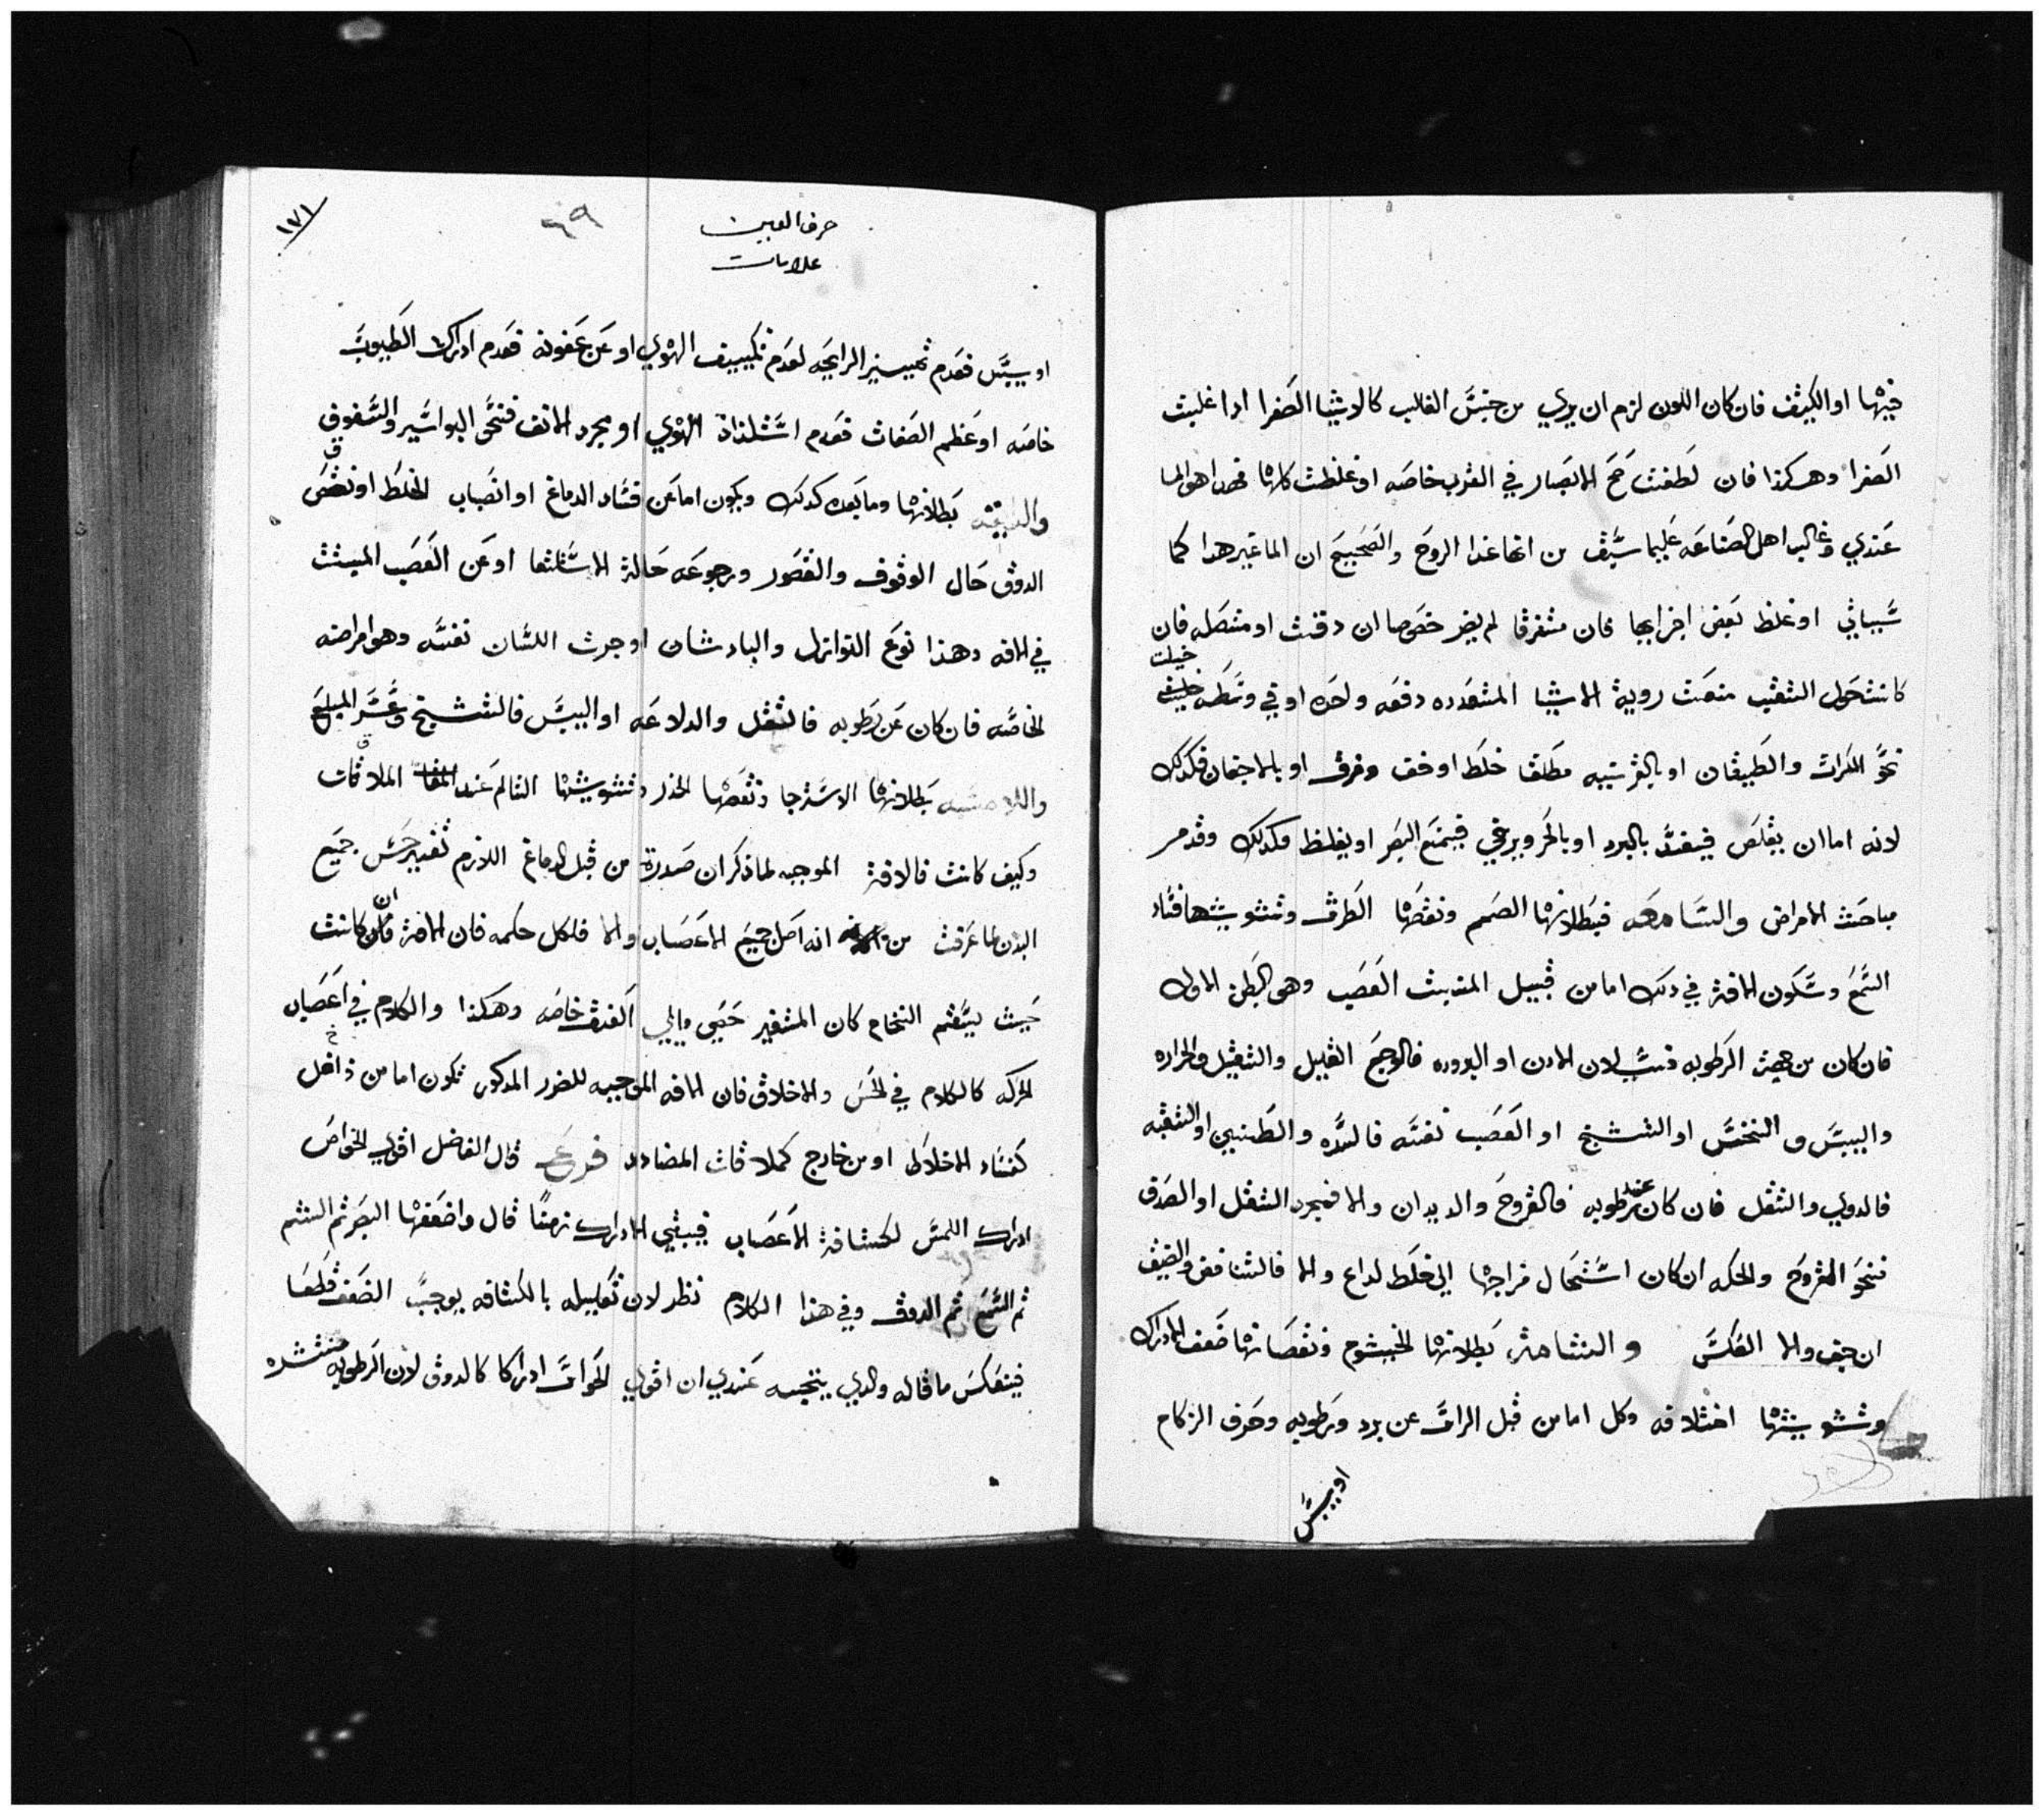 فيها او الكيف فان كان اللون لزم ان يري من جنس الغالب كالاشيا الصفرا اذا غلبت
الصفرا وهكذا فان لطفت صح الابصار في القرب خاصه او غلظت كلها فهو الما
عندي وغالب اهل الصناعه عليما سيق من انها غذا الروح والصحيح ان الما غير هذا كما
سياتي او غلظ بعض اجزايها فان متفرقا لم يضر خصوصا ان دقت او متصله فان
كانت حول الثقب منعت روية الاشيا المتعدده دفعه واحده او في وسطه خيلت
نحو الكرات والطيقان او بالغريبيه مطلقا خلط او خف وفرق او بالاجتماع فكذلك
لانه اما ان يقلص فيفسد بالبرد او بالحر ويرخي فيمنع البصر او يغلظ وكذلك وقد مر
مباحث الامراض والسامعه فبطلانها الصمم ونقصها الطرش وتشويشها فساد
السمع وتكون الافة في ذلك اما من قبيل المنبت العصب وهو البطن الاول
فان كان من جهة الرطوبه فسيلان الاذن او البروده فالوجع القليل والثقيل والحراره
واليبس والنخس او التشنج او العصب نفسه فالسده والطنين او الثقبه
فالدوي والثقل فان كان عند رطوبه فالقروح والديدان والا فمجرد الثقل او الصدق
فنحو القروح والحكه ان كان استحال مزاجها الي خلط لذاع والا فالتناقص والضيق
ان جف والا العكس والشامة بطلانها الخيشوم ونقصانها ضعف الادراك
وتشويشها اختلافه وكل اما من قبل الراس عن برد ورطوبه وحرف الزكام
او يبس
حرف العين
علامات
٦٩
١٧١
او يبس فعدم تمييز الرايحه لعدم تكييف الهوي او عن عفونه فعدم ادراك الطيوب
خاصه او عظم الصفات فعدم استلذاذ الهوي او مجرد الانف فنحو البواسير والشقوق
والذايقه بطلانها وما بعده كذلك ويكون اما عن فساد الدماغ او انصباب الخلط او نقص
الذوق حال الوقوف والقصور ورجوعه حالة الاستلقا او عن العصب المنبث
في الافه وهذا نوع النوازل والبادشان او جرت اللسان نفسه وهو امراضه
الخاصه فان كان عن رطوبه فالثقل والدلاعه او اليبس فالتشنج وعسر المبلع
واللامسه بطلانها الاسترخا ونقصها الخدر وتشويشها التالم عند الملاقات
وكيف كانت فالافة الموجبه لما ذكر ان صدرت من قبل الدماغ اللازم تغيير حس جميع
البدن لما عرفت من انه اصل جميع الاعصاب والا فلكل حكمه فان الافة ان كانت
حيث ينقسم النخاع كان المتغير حس والي العنق خاصه وهكذا والكلام في اعصاب
الحركه كالكلام في الحس والاخلاق فان الافه الموجبه للضرر المذكور تكون اما من داخل
كفساد الاخلاط او من خارج كملاقات المضادد فرع قال الفاضل اقوي الحواص
ادراك اللمس لكثافة الاعصاب فيبقي الادراك زمنا قال واضعفها البصر ثم الشم
ثم السمع ثم الذوق وفي هذا الكلام نظر لان تعليله بالكثافه يوجب الضعف قطعا
فينعكس ما قاله والذي يتجه عندي ان اقوي الحواس ادراكا كالذوق لان الرطوبه منتشره